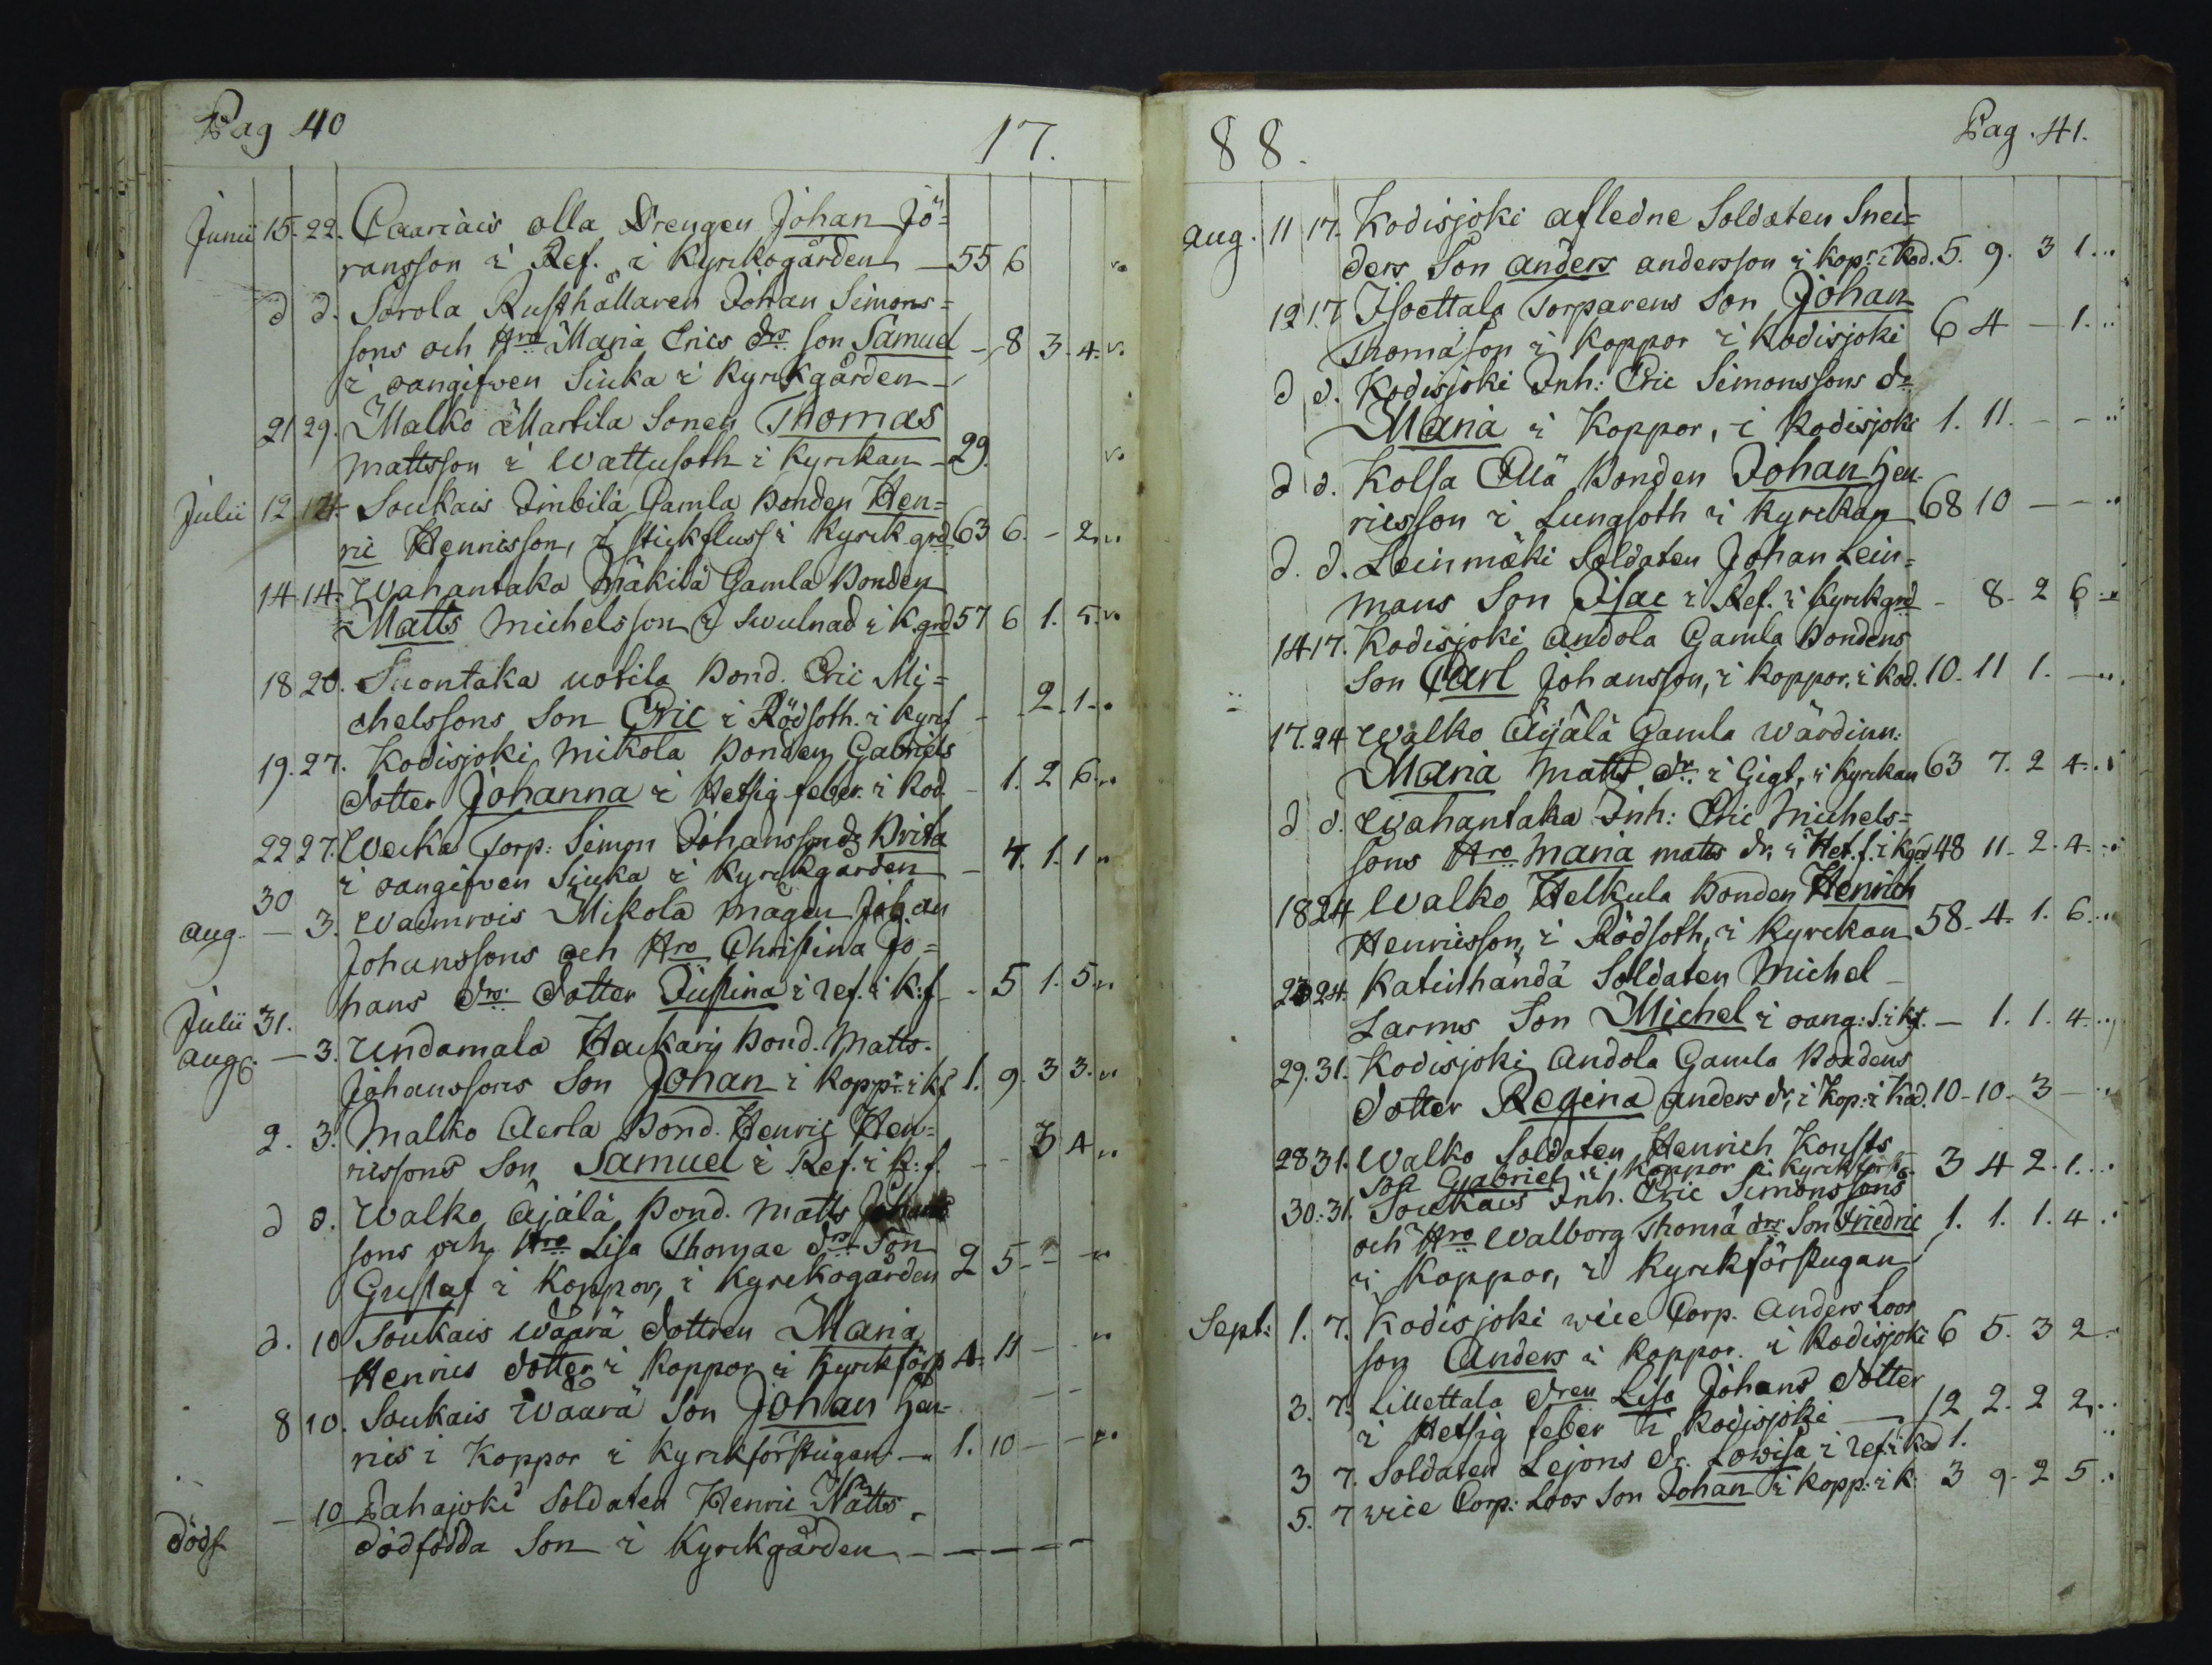 Pag 40
17.
Junii 15. 22. Caariais olla Drengen Johan Jö=
ransson i Ref. i Kyrkogården — 55 6
d d. Sorola Rusthållaren Johan Simons=
sons och Hro Maria Erics dr. son Samuel - 8 3. 4.
i oangifven Siuka i Kyrkgården -
21 29. Malko Martila Sonen Thomas
Mattsson i Wattusoth i Kyrkan - 29.
Julii 12. 14. Soukais Simbila Gamla Bonden Hen=
ric Henricsson, i stickfluss i Kyrk grd 63 6. - 2.
14 14. Wahantaka Mäkilä Gamla Bonden
Matts Michelsson i Swulnad i K. grd 57 6 1. 5.
18 20. Suontaka uotila Bond. Eric Mi=
chelssons Son Eric i Rödsoth. i Kyrf - - 2. 1.
19. 27. Kodisjoki Mikola Bonden Gabriels
dotter Johanna i Hetsig feber. i Kod. - 1. 2 6.
22 27. Torp: Simon Johanssons Brita
i oangifven Siuka i Kyrkgården - 4. 1. 1
30
aug. — 3. Mikola mågen Johan
Johanssons och Hro Christina Jo=
hans drs. dotter Justina i ref. i K:f - 5 1. 5.
Julii 31.
aug. — 3. Undamala Hackarij Bond. Matts
Johanssons Son Johan i Koppr. i Kf 1. 9. 3 3.
2. 3. Malko Aerla Bond. Henric Hen=
ricssons Son Samuel i Ref. i K:f. - - 3 4
d d. Walko Äjälä Bond. Matts
sons och Hro Lisa Thomae drs Son
Gustaf i Koppor, i Kyrkogården 2 5 - -
d. 10 Soukais Waara dottren Maria
Henrics dotter i Koppor i Kyrkförs 4. 11 -
8 10. Soukais Waara Son Johan Hen=
rics i Koppor i Kyrkförstugan — 1. 10 - -
— 10 Lahajoki Soldaten Henric Nätts
dödf dödfödda Son i Kyrkgården — — — — -
88.
Pag. 41.
Aug. 11 17. Kodisjoki afledne Soldaten Snei=
ders Son Anders andersson i kopr. i Kod. 5. 9. 3 1.
12 17 Isoettala Torparens Son Johan
Thomæson i Koppor i Kodisjoki 6 4 — 1.
d d. Kodisjoki Inh: Eric Simonssons dr
Maria i Koppor, i Kodisjoki 1. 11. - -
d d. Kolsa Ellä Bonden Johan Hen-
ricsson i Lungsoth i Kyrckan 68 10 — -
d. d. Leinmäki Soldaten Johan Lein=
mans Son Isac i Ref. i Kyrkgrd - 8. 2 6
14 17. Kodisjoki Andola Gamla Bondens
Son Carl Johansson, i Koppor. i Kod. 10. 11 1. —
17. 24 Walko Äyälä Gamla Wärdinn:
Maria Matts dr. i Gigt, i Kyrckan 63 7. 2 4.
d d. Wahantaka Inh: Eric Michels=
sons Hro Maria matts dr. i Het. f. i Kgrd 48 11. 2. 4.
18 24 Walko Helkula Bonden Henrich
Henricsson, i Rödsoth, i Kyrckan 58. 4. 1. 6.
23 24. Katinhändä Soldaten Michel
Larms Son Michel i oang: S. i Kf. — 1. 1. 4.
29. 31. Kodisjoki Andola Gamla Bondens
dotter Regina anders dr, i Kop: i Kod. 10. 10. 3 —
28 31. Walko Soldaten Henrich Konsts
son Gabriel i Koppor i Kyrkförs. 3 4 2. 1.
30. 31. Soukais Inh. Eric Simonssons
och Hro Walborg Thomæ drs Son Friedric 1. 1. 1. 4
i Koppor, i Kyrkförstugan
Sept: 1. 7. Kodisjoki vice Corp. Anders Loos
son Anders i Koppor. i Kodisjoki 6 5. 3 2.
3. 7. Liliettala dren Lisa Johans dotter
i Hetsig feber i Kodisjoki — 12 2. 2 2.
3 7. Soldaten Lejons dr. Lowisa i ref. i Kod 1.
5. 7 vice Corp: Loos Son Johan i kopp: i K. 3 9. 2 5.